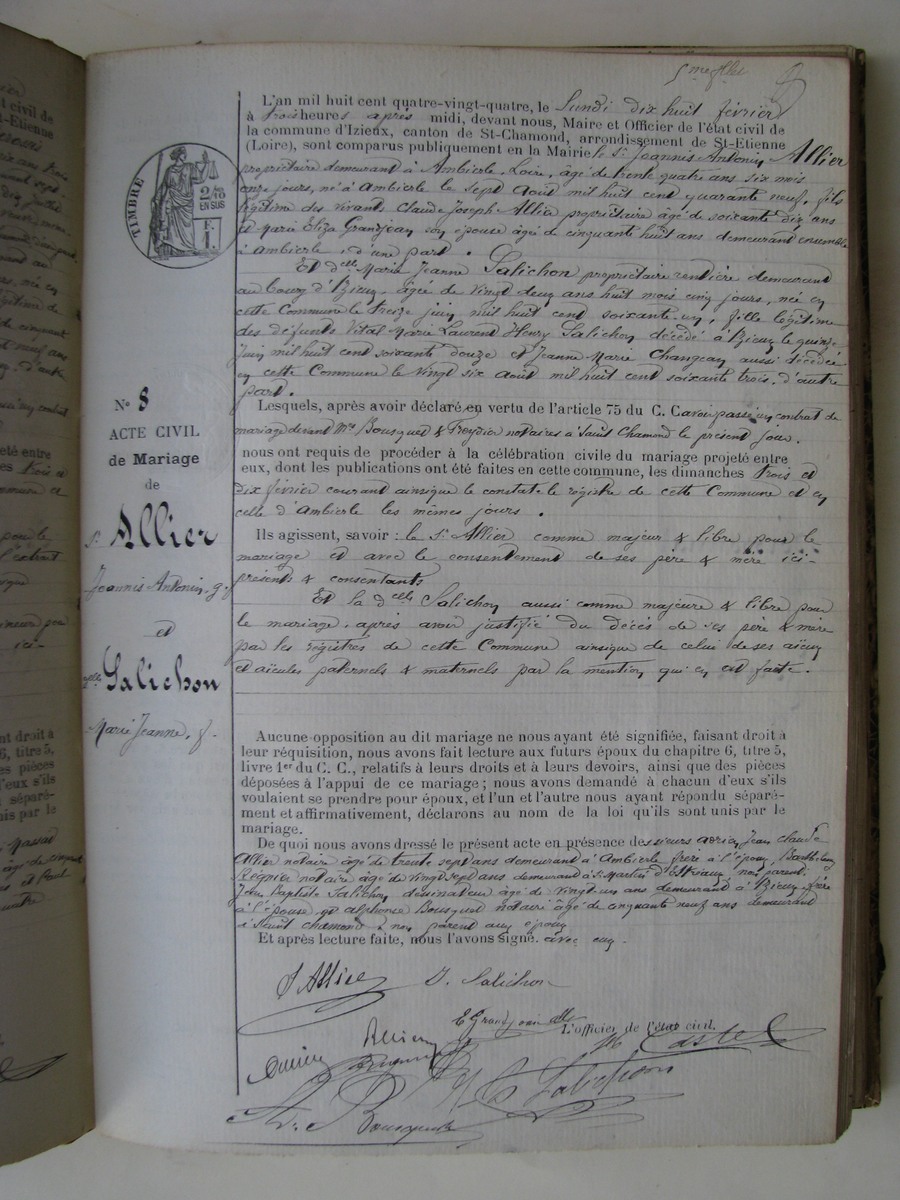 L'an mil huit cent quatre-vingt-quatre, le Lundi dix huit février
à trois heures après midi, devant nous, Maire et Officier de l'état civil de
la commune d'Izieux, canton de St-Chamond, arrondissement de St-Etienne
(Loire), sont comparus publiquement en la Mairie le Sr Joannis Antonin Allier
propriétaire demeurant à Ambierle, Loire, âgé de trente quatre ans six mois
onze jours, né à Ambierle le sept Aout mil huit cent quarante neuf, fils
légitime des vivants Claude Joseph Allier propriétaire âgé de soixante dix ans
et Marie Eliza Grandjean son épouse âgée de cinquante huit ans demeurant ensemble
à Ambierle, d'une part.
Et delle Marie Jeanne Salichon propriétaire rentière demeurant
au bourg d'Izieux, âgée de vingt deux ans huit mois cinq jours, née en
cette Commune le treize juin mil huit cent soixante-un, fille légitime
des défunts Vital Marie Laurent Henry Salichon décédé à Izieux le quinze
Juin mil huit cent soixante douze et Jeanne Marie Changean aussi décédée
en cette Commune le vingt six Aout mil huit cent soixante trois, d'autre
part.
TIMBRE
2/10
EN SUS
F.
1.
No 8
ACTE CIVIL
de Mariage
de
Sr Allier
Joannis Antonin, g.
et
Delle Salichon
Marie Jeanne, f.
Lesquels, après avoir déclaré en vertu de l'article 75 du C. C. avoir passé un contrat de
mariage devant Mes Bousquet & Freydier notaires à Saint Chamond le présent jour.
nous ont requis de procéder à la célébration civile du mariage projeté entre
eux, dont les publications ont été faites en cette commune, les dimanches trois et
dix février courant ainsi que le constate le régistre de cette Commune et en
celle d'Ambierle les mêmes jours.
Ils agissent, savoir : le Sr Allier comme majeur & libre pour le
mariage et avec le consentement de ses père & mère ici-
présents & consentants
Et la delle Salichon aussi comme majeure & libre pour
le mariage, après avoir justifié du décès de ses père & mère
par les régistres de cette Commune ainsi que de celui de ses aïeux
et aïeules paternels & maternels par la mention qui en est faite.
Aucune opposition au dit mariage ne nous ayant été signifiée, faisant droit à
leur réquisition, nous avons fait lecture aux futurs époux du chapitre 6, titre 5,
livre 1er du C. C., relatifs à leurs droits et à leurs devoirs, ainsi que des pièces
déposées à l'appui de ce mariage ; nous avons demandé à chacun d'eux s'ils
voulaient se prendre pour époux, et l'un et l'autre nous ayant répondu séparé-
ment et affirmativement, déclarons au nom de la loi qu'ils sont unis par le
mariage.
De quoi nous avons dressé le présent acte en présence des sieurs Jean Claude
Allier notaire âgé de trente sept ans demeurant à Ambierle frère à l'époux, Barthélemy
Régnier notaire âgé de vingt sept ans demeurant à St Martin d'Estréaux non parent,
Jean Baptiste Salichon dessinateur âgé de vingt un ans demeurant à Izieux frère
à l'épouse, et Alphonse Bousquet notaire âgé de cinquante neuf ans demeurant
à Saint chamond, non parent aux époux
Et après lecture faite, nous l'avons signé avec eux.
J Allier J. Salichon
E Grandjean
L'officier de l'état civil.
Allier
Castel
Salichon
A. Bousquet